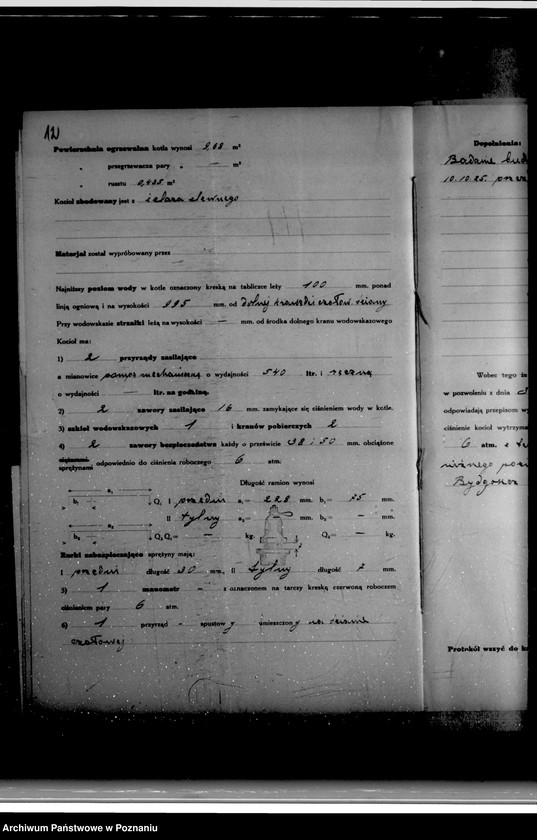 12
Powierzchnia ogrzewalna kotła wynosi 9,68 m²
„ przegrzewacza pary „ — m²
„ rusztu 0,435 m²
Kocioł zbudowany jest z żelaza zlewnego
Materjał został wypróbowany przez
Najniższy poziom wody w kotle oznaczony kreską na tabliczce leży 100 mm. ponad
linją ogniową i na wysokości 995 mm. od dolnej krawędzi czołow. ściany
Przy wodowskazie strzałki leżą na wysokości — mm. od środka dolnego kranu wodowskazowego
Kocioł ma:
1) 2 przyrządy zasilające
a mianowicie pompę mechaniczną o wydajności 540 ltr. i ręczną
o wydajności — ltr. na godzinę.
2) 2 zawory zasilające 16 mm. zamykające się ciśnieniem wody w kotle.
3) szkieł wodowskazowych 1 i kranów pobierczych 2
4) 2 zawory bezpieczeństwa każdy o prześwicie 38 i 50 mm. obciążone
ciężarami
sprężynami odpowiednio do ciśnienia roboczego 6 atm.
Długość ramion wynosi
a₁ b₁ Q₁ I przedni a₁= 228 mm. b₁= 75 mm.
II tylny a₂= — mm. b₂= — mm.
a₂ b₂ Q₂ Q₁= — kg. Q₂= — kg.
Rurki zabezpieczające sprężyny mają:
I przedni długość 30 mm., II tylny długość 7 mm.
5) 1 manometr — z oznaczonem na tarczy kreską czerwoną roboczem
ciśnieniem pary 6 atm.
6) 1 przyrząd - spustowy umieszczony na ścianie
czołowej
Dopełnienia:
Badanie
10.10.25. przez
Wobec tego że
w pozwoleniu z dnia
odpowiadają przepisom w
ciśnienie kocioł wytrzyma
6 atm. z
Bydgoszcz
Protokół wszyć do k
Archiwum Państwowe w Poznaniu